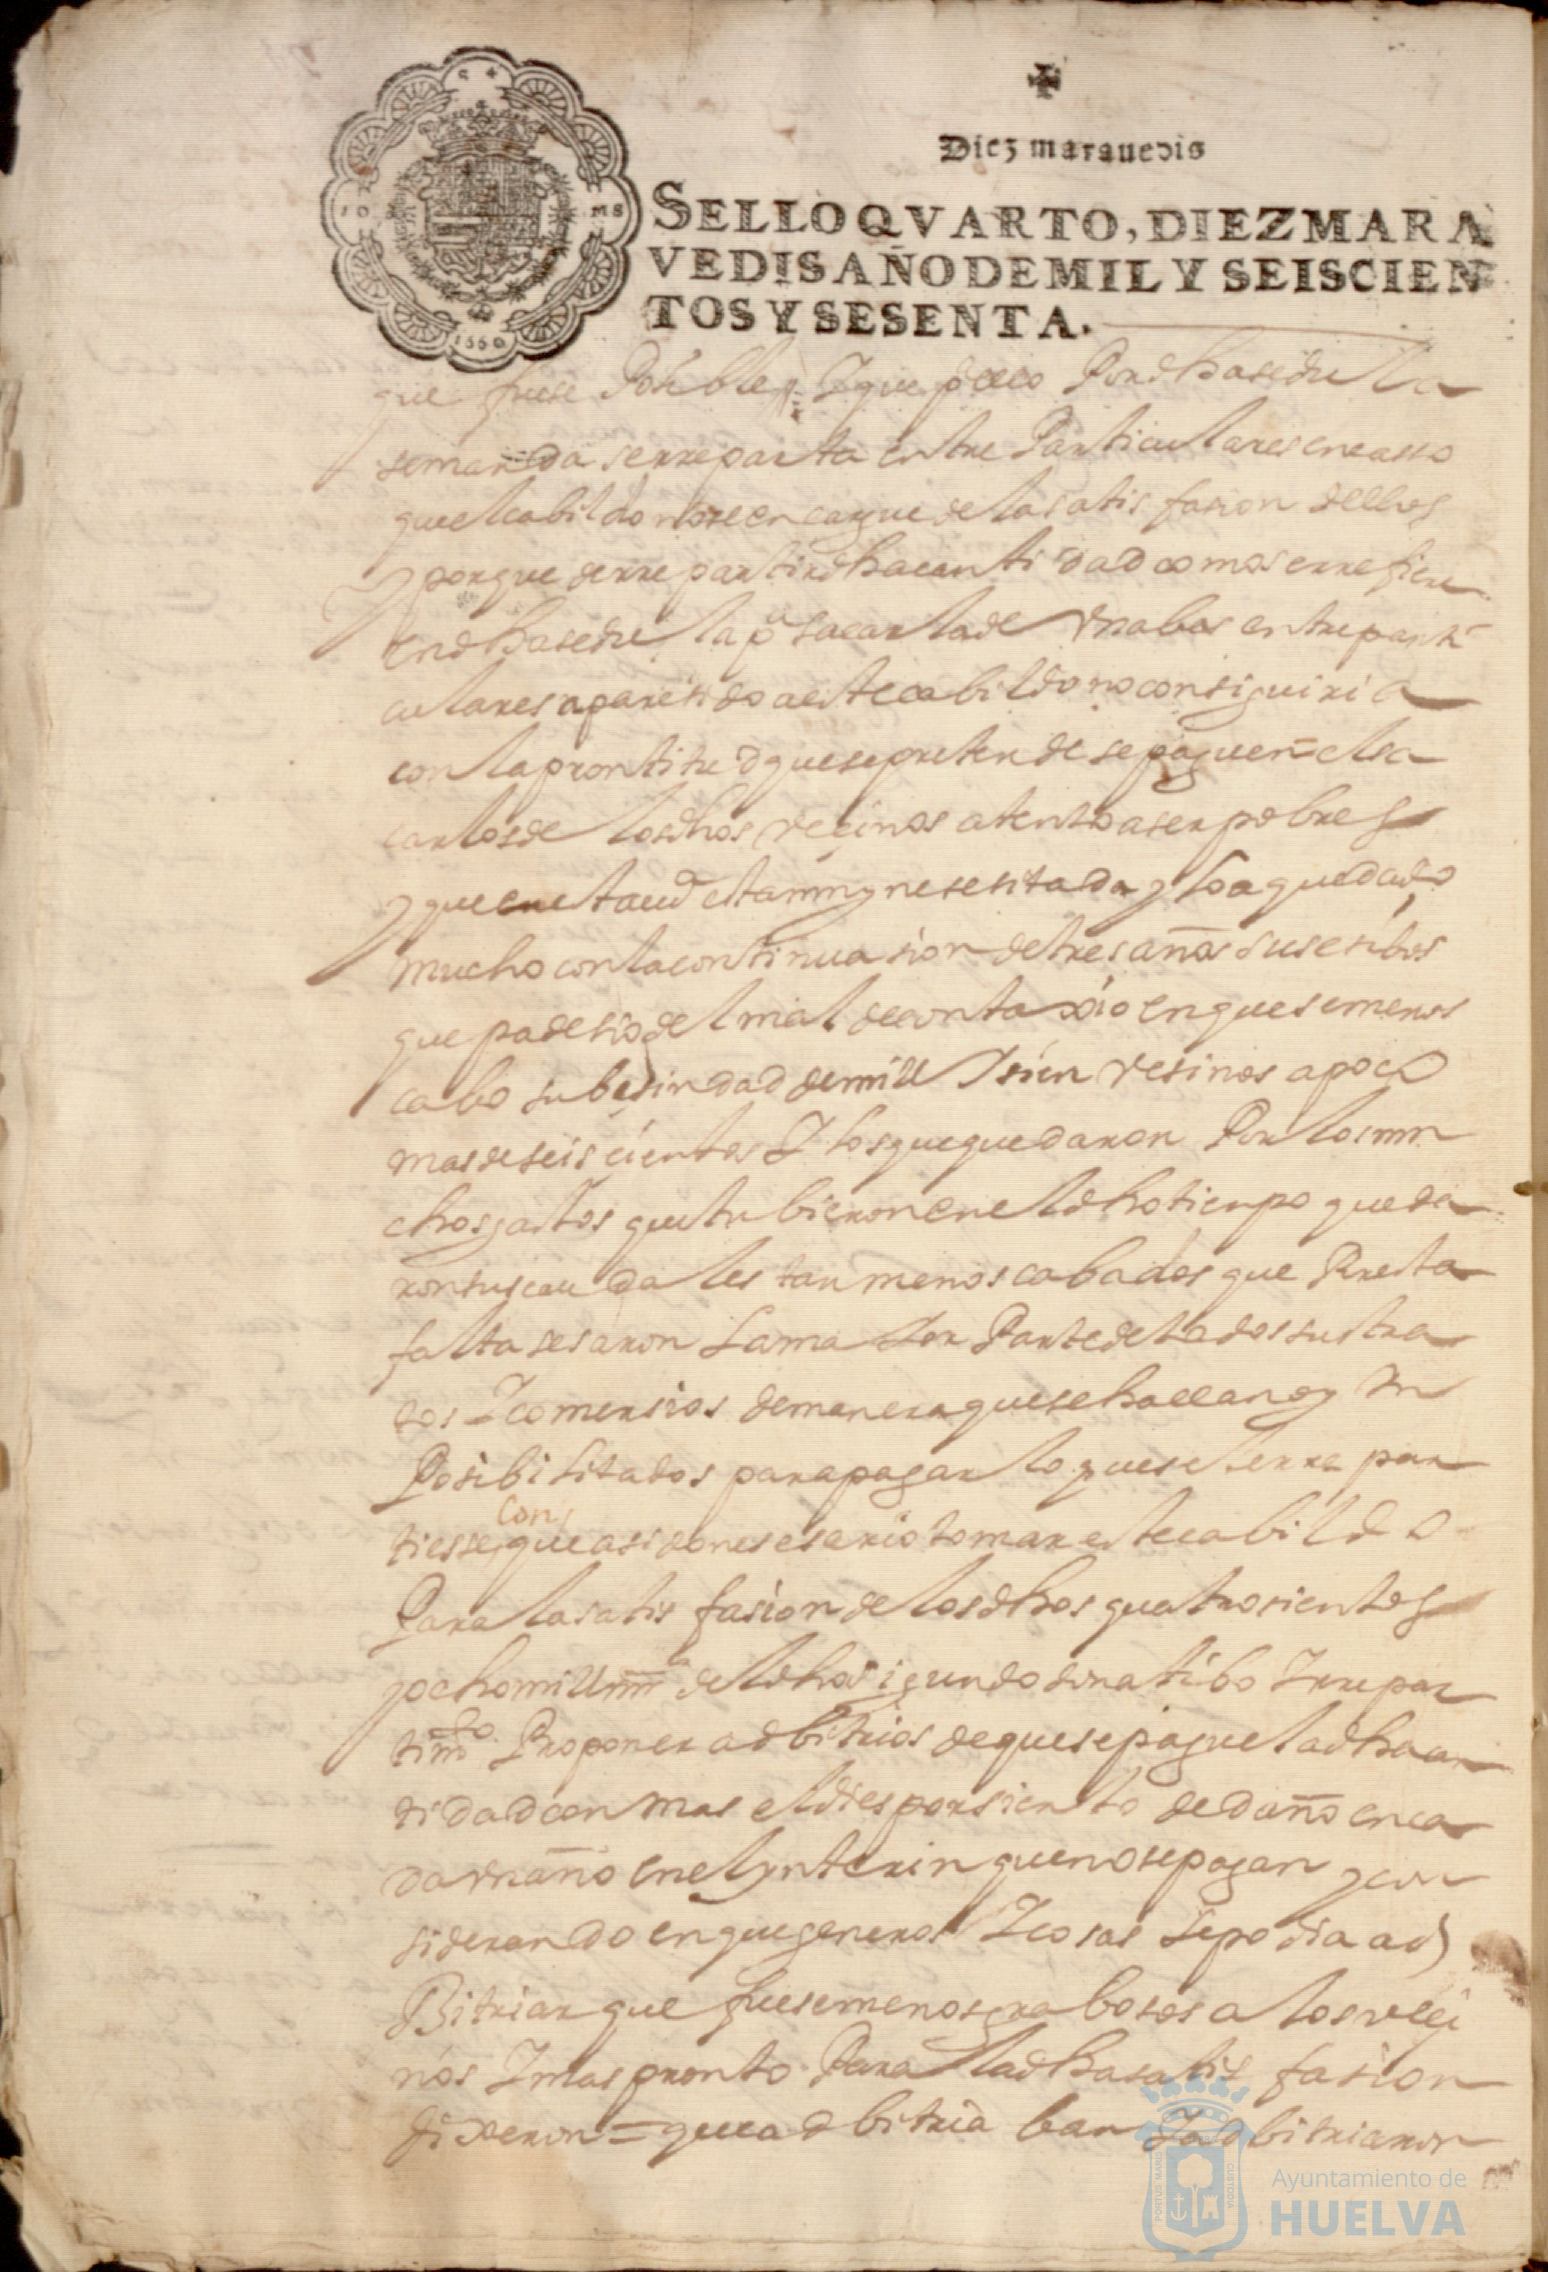 Diez marauedis
SELLO QVARTO, DIEZ MARA
VEDIS AÑO DE MIL Y SEISCIEN
TOS Y SESENTA.
10 MS
1660
que fuese Posible y que Por dha sedula
se manda se rreparta entre Particulares en casso
que el cabildo no se encargue de la satisfasion dellos
y porque de rrepartir dha cantidad como se rrefiere
en dha sedula pª sacarla de un abas entre parti
culares a paresido a este cabildo no consiguiria
con la prontitud que se pretende se paguen el sa
carlos de los dhos veçinos atento a ser pobres
y que esta ciud esta muy nesesitada y lo a quedado
mucho con la continuasion de tres años susesibos
que padesio del mal de contaxio en que se menos
cabo su besindad de mill y sien vesinos a poco
mas de seis çientos y los que quedaron Por los mu
chos gastos que tubieron en el dho tienpo queda
ron sus caudales tan menoscabados que Por esta
falta sesaron la maior Parte de todos sus tra
tos y comersios de manera que se hallan oy yn
Posibilitados para pagar lo que se les rrepar
tiesse con que a sido nesesario tomar este cabildo
Para la satisfasion de los dhos quatrosientos
y ocho mill mrs del dho sigundo donatibo y rrepar
timto Proponer adbitrios de que se pague la dha can
tidad con mas el dies por siento de daño en ca
da un año en el ynterin que no se pagan y con
siderando en que generos y cosas se podia ad
Bitriar que fuese menos grabosos a los veçi
nos y mas pronto Para la dha satisfasion
dixeron = que adbitriaban y adbitriaron
Ayuntamiento de
HUELVA